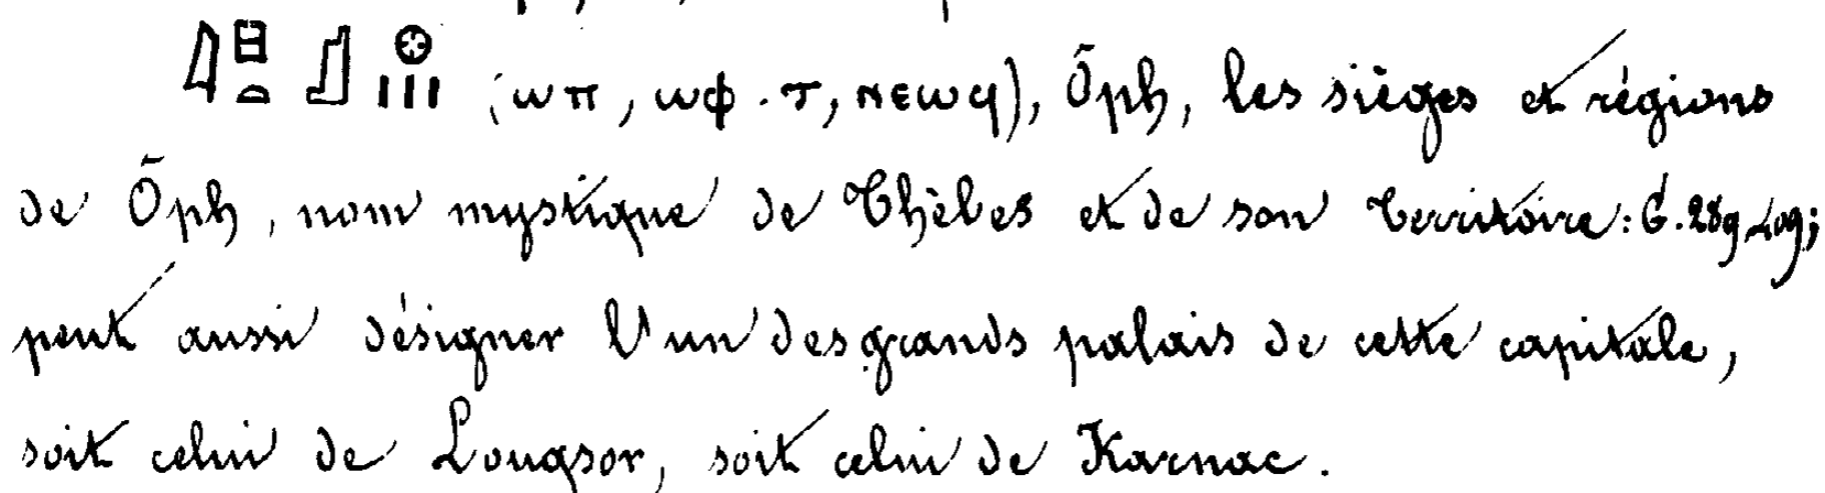 (ⲱⲡ, ⲱⲫ.ⲧ, ⲛⲉⲱϥ), Ōph, les sièges et régions
de Ōph, nom mystique de Thèbes et de son territoire: G. 289, 409;
peut aussi désigner l'un des grands palais de cette capitale,
soit celui de Louqsor, soit celui de Karnac.